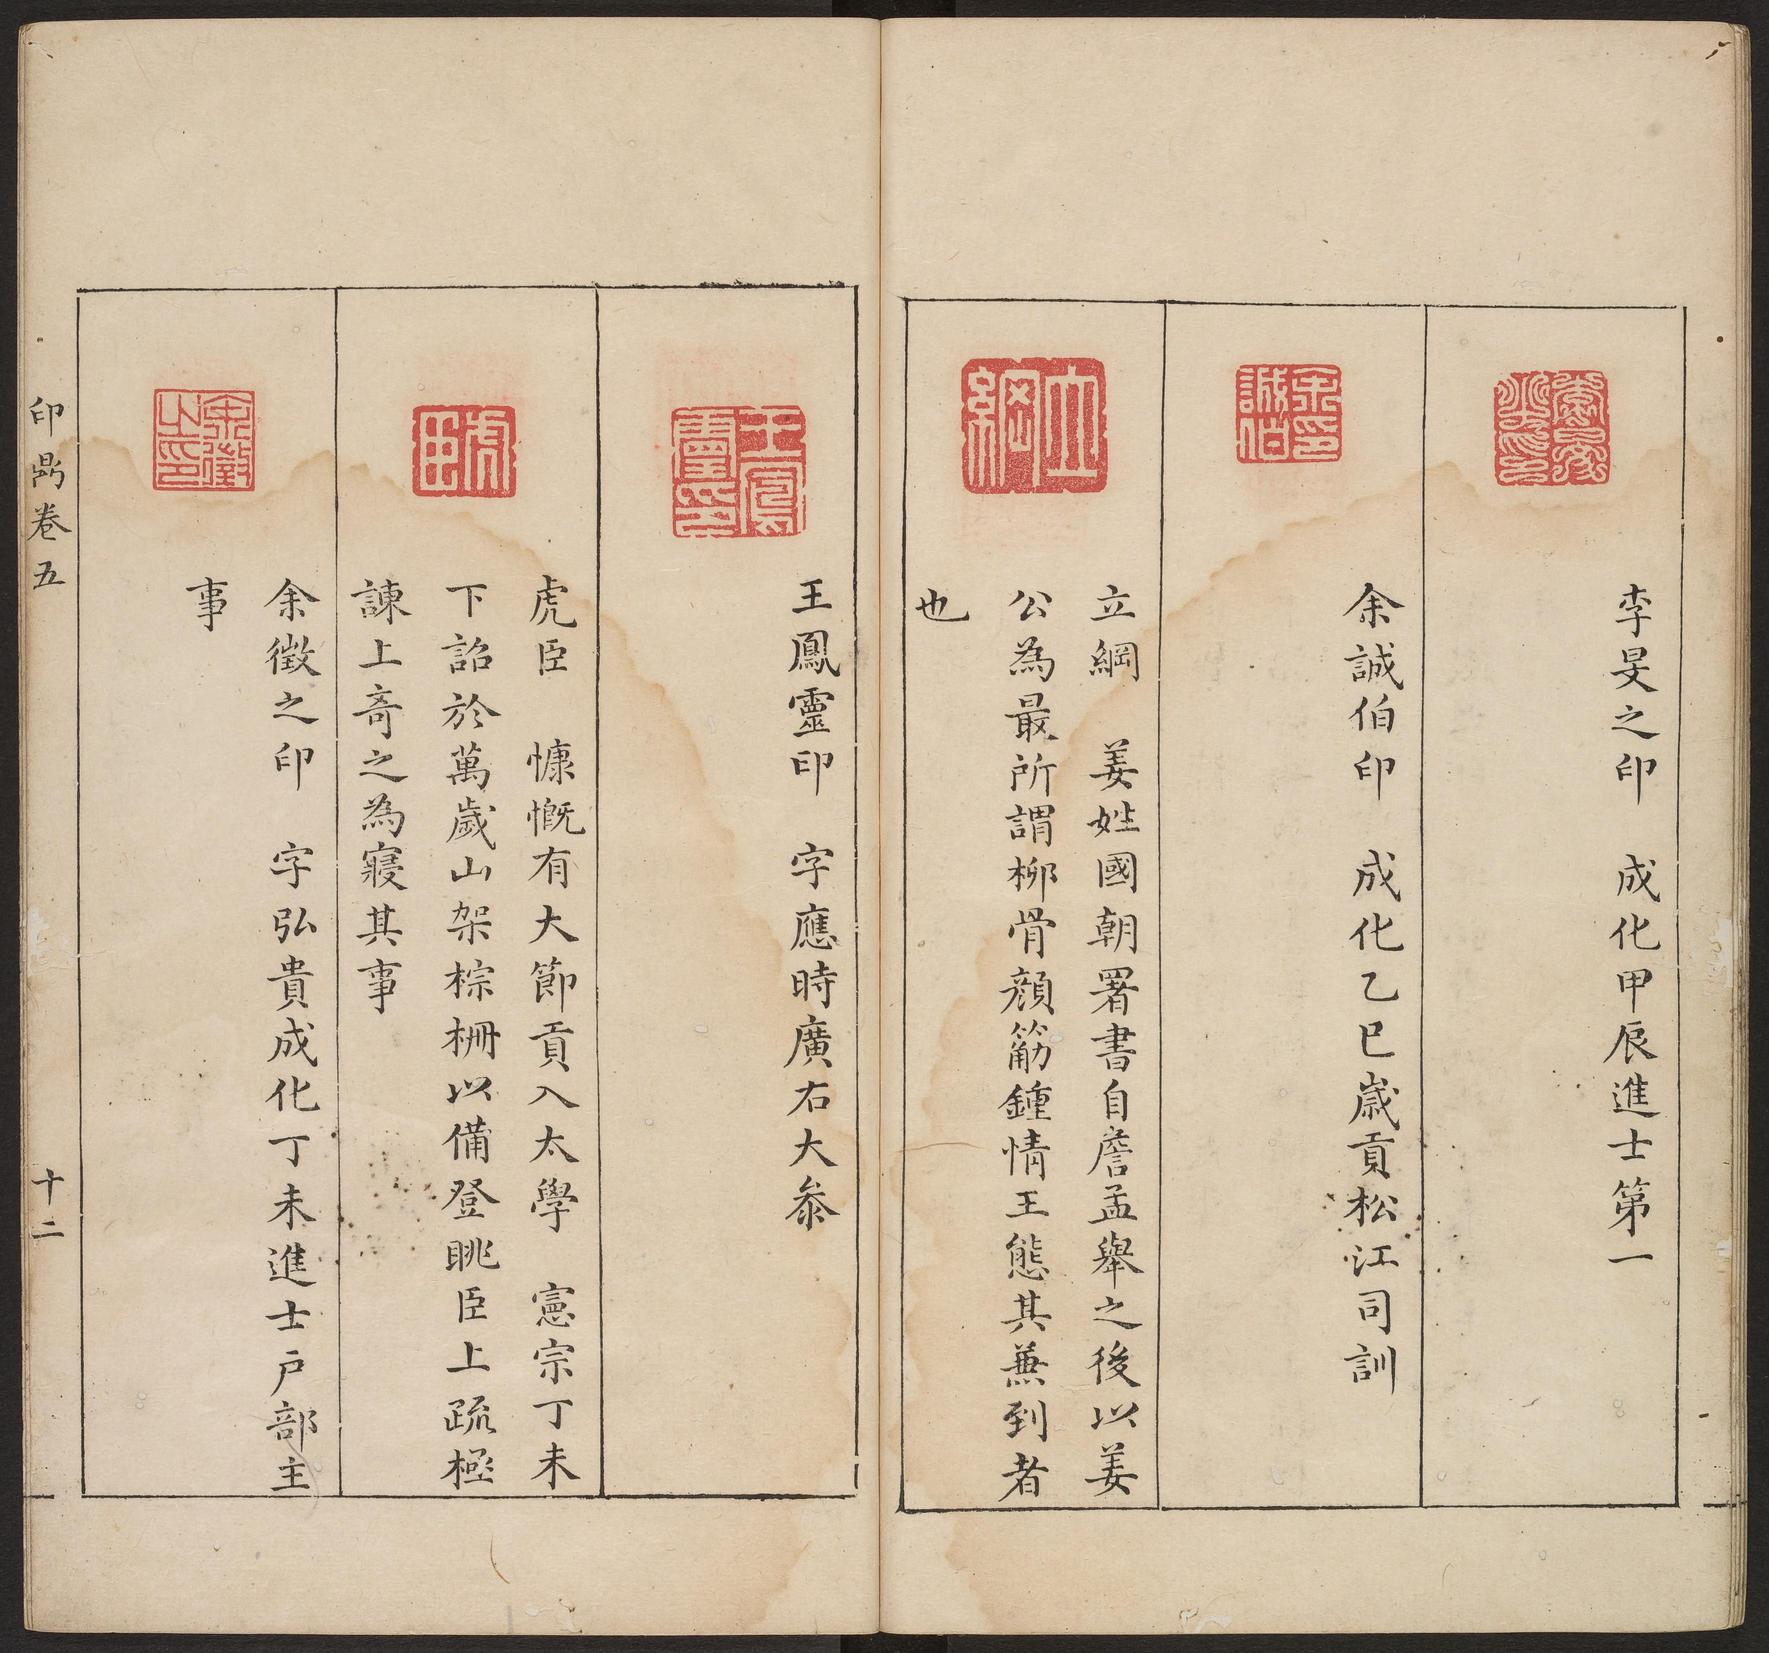 李旻之印　成化甲辰進士第一
余誠伯印　成化乙巳歲貢松江司訓
立綱　姜姓國朝署書自詹孟舉之後以姜
公為最所謂柳骨顔筋鍾情王態其兼到者
也
王鳳靈印　字應時廣右大叅
虎臣　慷慨有大節貢入太學　憲宗丁未
下詔於萬歲山架棕栅以備登眺臣上疏極
諫上奇之為寢其事
余徵之印　字弘貴成化丁未進士户部主
事
印鼎卷五
十二
立綱
余印誠伯
王鳳靈印
虎臣
余徵之印